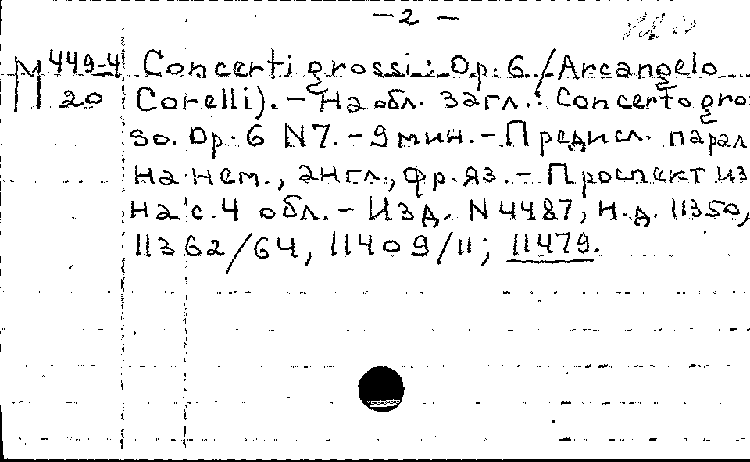 – 2 –
М 449-4 Concerti grossi: Op. 6 / Arcangelo
20 Corelli). – На обл. загл.: Concerto gros
so. Op. 6 N7. – 9 мин. – Предисл. парал
на нем., англ., фр. яз. – Проспект из
на с. 4 обл. – Изд. N 4487, н.д. 11350,
11362/64, 11409/11; 11479.